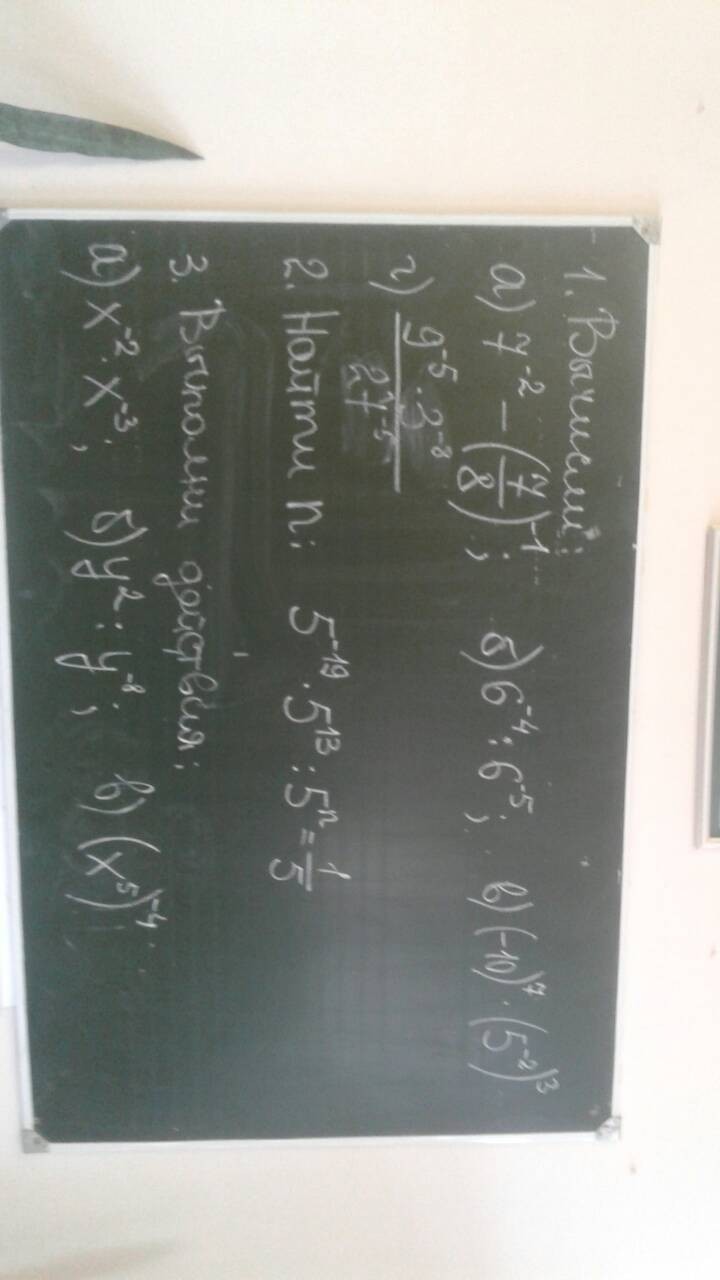 1. Вычисли:
а) 7⁻² − (7/8)⁻¹; б) 6⁻⁴ : 6⁻⁵; в) (−10)⁷ · (5⁻²)³
г) (9⁻⁵ · 3⁻⁸)/27⁻⁵
2. Найти n: 5⁻¹⁹ · 5¹³ : 5ⁿ = 1/5
3. Выполни действия:
а) x⁻² · x⁻³; б) y² : y⁻⁸; в) (x⁵)⁻⁴